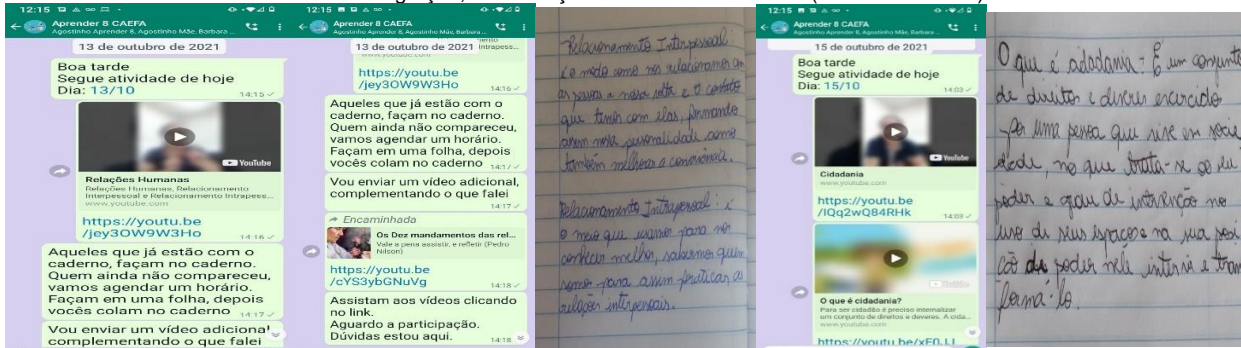 12:15
Aprender 8 CAEFA
Agostinho Aprender 8, Agostinho Mãe, Barbara ...
13 de outubro de 2021
Boa tarde
Segue atividade de hoje
Dia: 13/10
14:15
YouTube
Relações Humanas
Relações Humanas, Relacionamento
Interpessoal e Relacionamento Intrapess...
www.youtube.com
https://youtu.be
/jey3OW9W3Ho
14:16
Aqueles que já estão com o
caderno, façam no caderno.
Quem ainda não compareceu,
vamos agendar um horário.
Façam em uma folha, depois
vocês colam no caderno
14:17
Vou enviar um vídeo adicional,
complementando o que falei
12:15
Aprender 8 CAEFA
Agostinho Aprender 8, Agostinho Mãe, Barbara ...
13 de outubro de 2021
https://youtu.be
/jey3OW9W3Ho
14:16
Aqueles que já estão com o
caderno, façam no caderno.
Quem ainda não compareceu,
vamos agendar um horário.
Façam em uma folha, depois
vocês colam no caderno
14:17
Vou enviar um vídeo adicional,
complementando o que falei
14:17
Encaminhada
Os Dez mandamentos das rel...
Vale a pena assistir, e refletir (Pedro
Nilson)
https://youtu.be
/cYS3ybGNuVg
14:18
Assistam aos vídeos clicando
no link.
Aguardo a participação.
Dúvidas estou aqui.
14:18
Relacionamento Interpessoal:
é o modo como nos relacionamos com
as pessoas a nossa volta e o contato
que temos com elas, formando
assim nossa personalidade como
também melhora a convivência.
Relacionamento Intrapessoal: é
o meio que usamos para nos
conhecer melhor, sabermos quem
somos para assim praticar as
relações interpessoais.
12:15
Aprender 8 CAEFA
Agostinho Aprender 8, Agostinho Mãe, Barbara ...
15 de outubro de 2021
Boa tarde
Segue atividade de hoje
Dia: 15/10
14:03
YouTube
Cidadania
www.youtube.com
https://youtu.be
/IQq2wQ84RHk
14:03
O que é cidadania?
Para ser cidadão é preciso internalizar
um conjunto de direitos e deveres. A cida...
www.youtube.com
O que é cidadania - É um conjunto
de direitos e deveres exercido
por uma pessoa que vive em socie
dade, no que trata-se ao seu
poder e grau de intervenção no
uso de seus espaços e na sua posi
ção de poder nele intervir e trans
formá-lo.